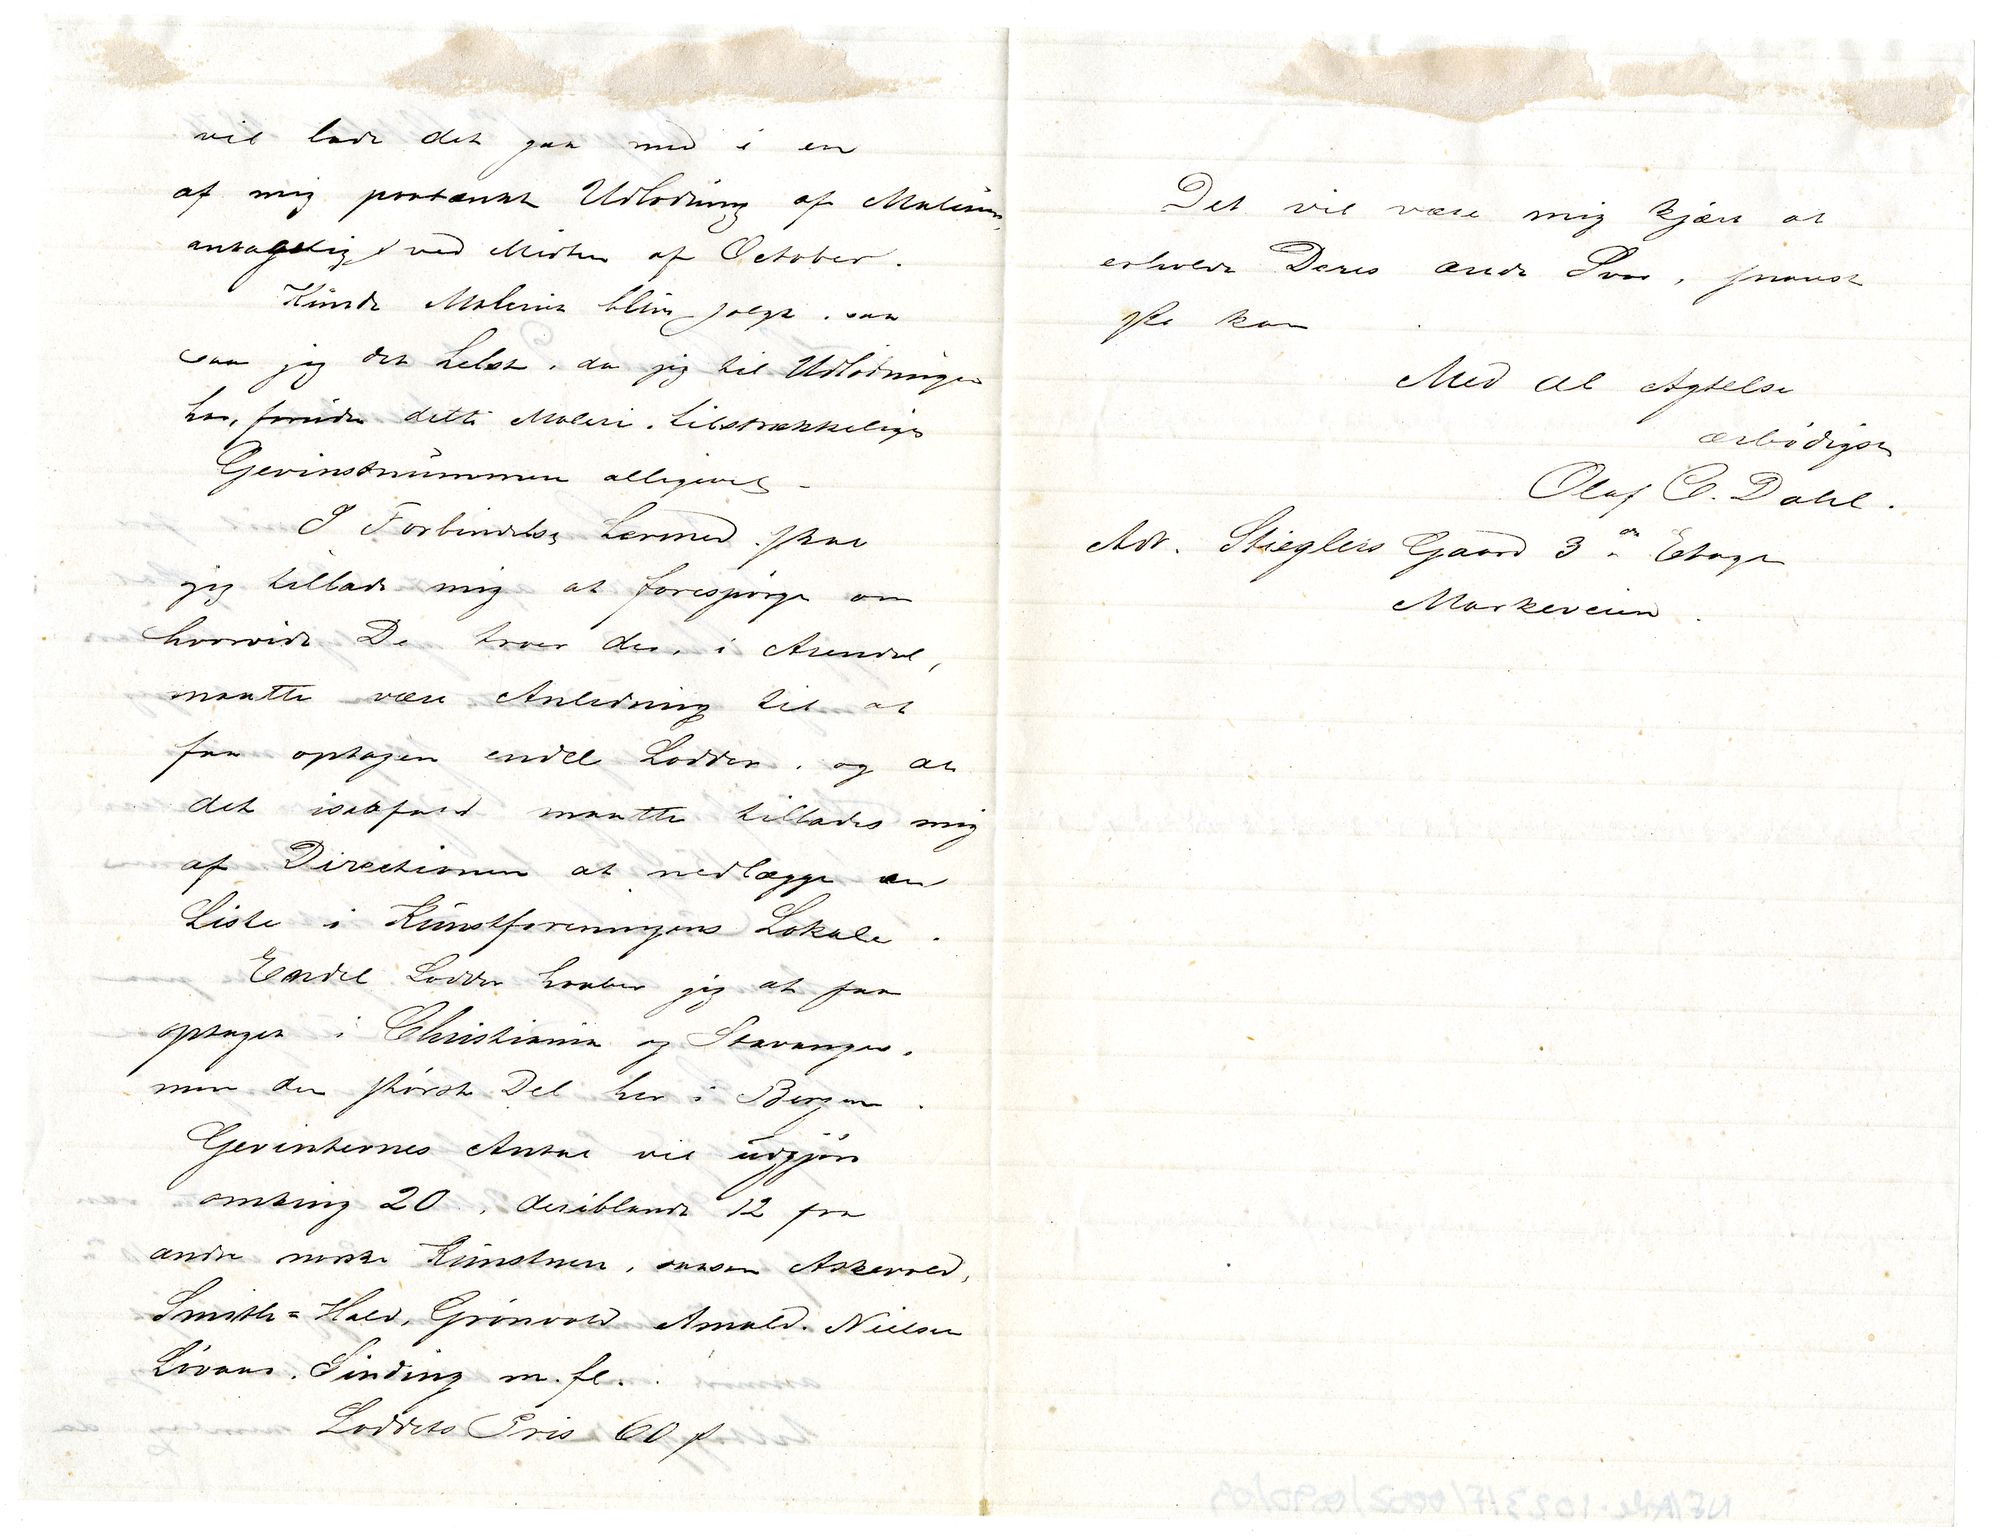 vil lade det gaa med i en
af mig paatænkt Udlodning af Malerier,
antagelig ved Midten af October.
Kunde Maleriet blive solgt, saa
saa jeg det helst, da jeg til Udlodningen
har, foruden dette Maleri, tilstrækkelige
Gevinstnummere alligevel.
I Forbindelse hermed skal
jeg tillade mig at forespørge om
hvorvidt De troer der, i Arendal,
maatte være Anledning til at
faa optagen endel Lodder, og at
det isaafald maatte tillades mig
af Directionen at nedlægge en
Liste i Kunstforeningens Lokale.
Endel Lodder haaber jeg at faa
optaget i Christiania og Stavanger,
men den største Del her i Bergen.
Gevinternes Antal vil udgjøre
omkring 20, deriblandt 12 fra
andre norske Kunstnere, saasom Askevold,
Smith=Hald, Grønvold Amald. Nielsen
Løvaas, Sinding m. fl.
Loddets Pris 60 ø
Det vil være mig kjært at
erholde Deres ærede Svar, snarest
ske kan
Med al Agtelse
ærbødigst
Olaf C. Dahl.
Adr. Stieglers Gaard 3die Etage
Markeveien.
NE/Ark-1023/F/0002/0090/09